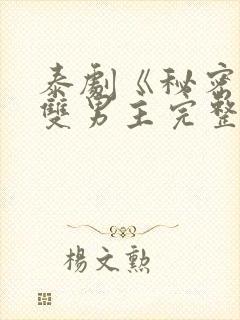 泰劇《秘密
雙男主完整
楊文勲